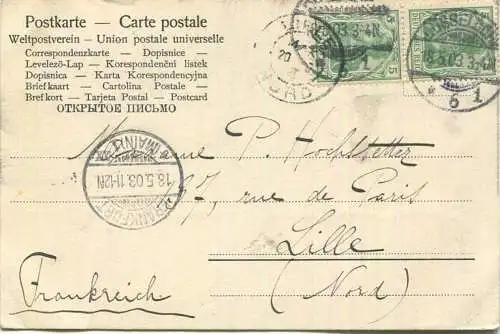 Postkarte — Carte postale
Weltpostverein — Union postale universelle
Correspondenzkarte — Dopisnice
Levelező-Lap — Korespondenční listek
Dopisnica — Karta Korespondencyjna
Briefkaart — Cartolina Postale
Brefkort — Tarjeta Postal — Postcard
ОТКРЫТОЕ ПИСЬМО
LILLE
20
NORD
5
5
03 3-4N
* 5 1
Monsieur P. Hochstetter
(MAIN)
18.5.03.11-12N.
FRANKFURT
97, rue de Paris
Lille
(Nord)
Frankreich